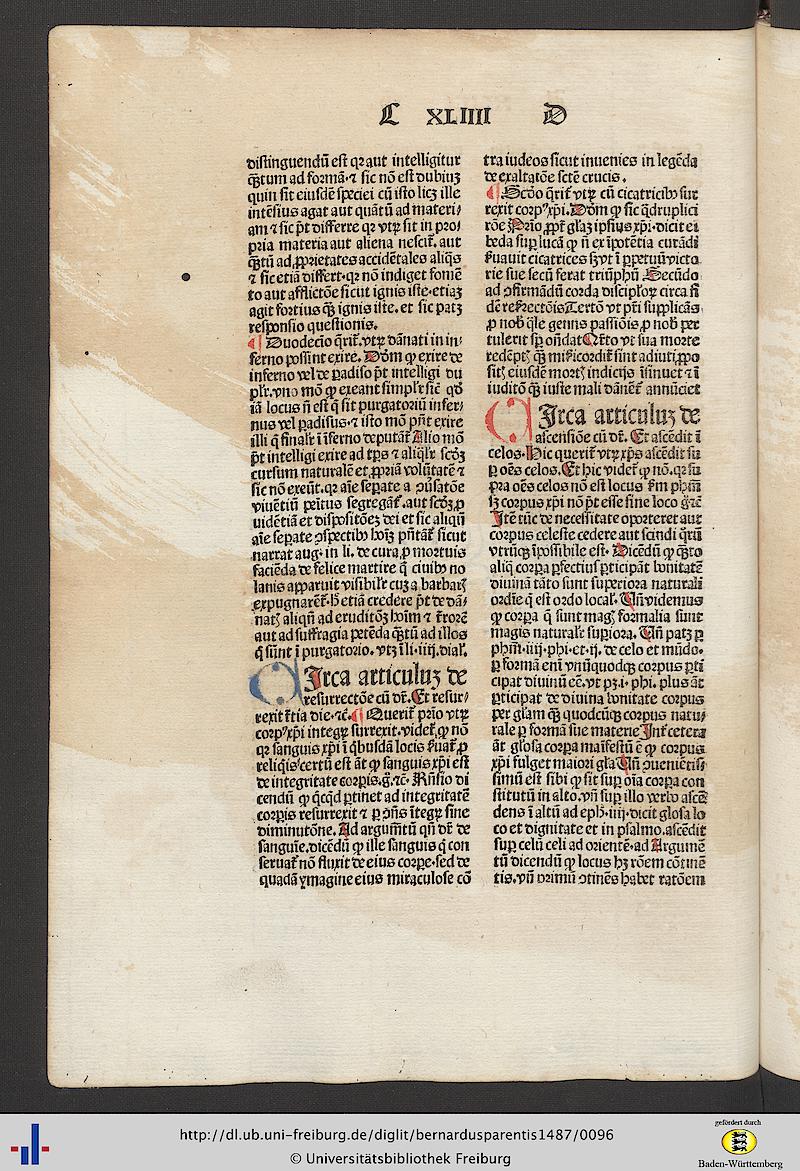 C XLIIII D
distinguendū est qꝛ aut intelligitur
q̄ꝫtum ad formā·⁊ sic nō est dubiuꝫ
quin sit eiusdē speciei cū isto licꝫ ille
intēsius agat aut quātū ad materi⸗
am ⁊ sic p̄t differre qꝛ vtꝝ sit in pro⸗
pria materia aut aliena nescit᷑. aut
q̄ꝫtū ad ꝓprietates accidētales aliq̄s
⁊ sic etiā differt·qꝛ nō indiget fomē
to aut afflictōe sicut ignis iste·etiaꝫ
agit fortius q̄ꝫ ignis iste. et sic patꝫ
responsio questionis.
¶ Duodecīo q̄rit᷑. vtꝝ dānati in in⸗
ferno possint exire. Dōm ꝙ exire de
inferno vel de padiso p̄t intelligi du
plr̄. vno mō ꝙ exeant simplr̄ sic̄ qd̄
iā locus n̄ est q̄ sit purgatoriū infer⸗
nus vel padisus·⁊ isto mō pn̄t exire
illi q̄ finalr̄ ī īferno deputāt᷑ Alio mō
p̄t intelligi exire ad tp̄s ⁊ aliqlr̄ scd̄ꝫ
cursum naturalē et ꝓpriā volūtatē ⁊
sic nō exeūt. qꝛ aīe sepate a ꝯūsatōe
viuētiū peītus segregāt᷑. aut scd̄ꝫ ꝓ
uidētiā et dispositōeꝫ dei et sic aliqn̄
aīe sepate ꝯspectibꝰ hoīꝫ pn̄tāt᷑ sicut
narrat aug· in li. de cura ꝓ mortuis
faciēda de felice martire q̄ ciuibꝰ no
lanis apparuit visibilr̄ cuꝫ a barbaꝝ
expugnarēt᷑·h̄ etiā credere p̄t de dā⸗
natꝭ aliqn̄ ad eruditōꝫ hoīm ⁊ t᷑rorē
aut ad suffragia petēda q̄ꝫtū ad illos
q̄ sūnt ī purgatorio. vtꝫ ī li·iiij. dial᷑.
CIrca articuluꝫ de
resurrectōe cū dr̄. Et resur⸗
rexit t᷑tia die·⁊c̄. ¶ Querit᷑ prīo vtꝝ
corpꝰ xp̄i integꝝ surrexit. videt᷑ ꝙ nō
qꝛ sanguis xp̄i ī qbusdā locis ẜuat᷑ ꝓ
reliqis certū est āt ꝙ sanguis xp̄i est
de integritate corpis. g̊·⁊c̄· Rn̄sio di
cendū ꝙ qcqd ptinet ad integritatē
corpis resurrexit ⁊ p ꝯn̄s ītegꝝ sine
diminutōne. Ad argumtū qn̄ dr̄ de
sanguīe. dicēdū ꝙ ille sanguis q̄ con
seruat᷑ nō fluxit de eius corpe·sed de
quadā ymagine eius miraculose cō
tra iudeos sicut inuenies in legēda
de exaltatōe sctē crucis.
¶ Scd̄o q̄rit᷑ vtꝝ cū cicatricibꝰ sur
rexit corpꝰ xp̄i. Dōm ꝙ sic q̄druplici
rōe Prīo ꝓpt᷑ gl̄aꝫ ipsius xp̄i·dicit eī
beda sup lucā ꝙ n̄ ex īpotētia curādi
ẜuauit cicatrices sꝫ vt ī ppetuū victo
rie sue secū ferat triūphū Secūdo
ad ꝯfirmādū corda discipl̓oꝝ circa fi
dē resurectōis Tertō vt pr̄i supplicās
ꝓ nob q̄le genus passiōis ꝓ nob per
tulerit sp̄ on̄dat Q̄rto vt sua morte
redēptꝭ q̄ꝫ mīẜicordit᷑ sint adiuti ꝓpo
sitꝭ eiusdē mortꝭ indicijs īsinuet ⁊ ī
iuditō q̄ꝫ iuste mali dānēt᷑ annūciet
CIrca articuluꝫ de
ascensiōe cū dr̄. Et ascēdit ī
celos· Hic querit᷑ vtꝝ xp̄s ascēdit su
p oēs celos. Et hic videt᷑ ꝙ nō. qꝛ su
pra oēs celos nō est locus ẜm phm̄
sꝫ corpus xp̄i nō p̄t esse sine loco g̊·⁊c̄
Itē tūc de necessitate oporteret aut
corpus celeste cedere aut scindi q̄rū
vtrūqꝫ īpossibile est· Dicēdū ꝙ q̄ꝫto
aliq̄ corpa pfectius pticipāt bonitatē
diuinā tāto sunt superiora naturali
ordīe q̄ est ordo local᷑· Un̄ videmus
ꝙ corpa q̄ sunt magꝭ formalia sunt
magis naturalr̄ supiora. Un̄ patꝫ p
phm̄·iiij·phi·et·ij. de celo et mūdo·
p formā eni vnūquodqꝫ corpus pti
cipat diuinū eē. vt pꝫ·i·phi. plus āt
pticipat de diuina bonitate corpus
per gl̄am q̄ꝫ quodcūqꝫ corpus natu⸗
rale p formā sue materie Int᷑ cetera
āt gl̓osa corpa maīfestū ē ꝙ corpus
xp̄i fulget maiori gl̄a Un̄ ꝯuenietis̄
simū est sibi ꝙ sit sup oīa corpa con
stitutū in alto. vn̄ sup illo verbo ascē
dens ī altū ad eph·iiij·dicit glosa lo
co et dignitate et in psalmo. ascēdit
sup celū celi ad orientē·ad Argumē
tū dicendū ꝙ locus hꝫ rōem cōtinē
tis. vn̄ primū ꝯtinēs habet ratōem
http://dl.ub.uni-freiburg.de/diglit/bernardusparentis1487/0096
© Universitätsbibliothek Freiburg
gefördert durch
Baden-Württemberg